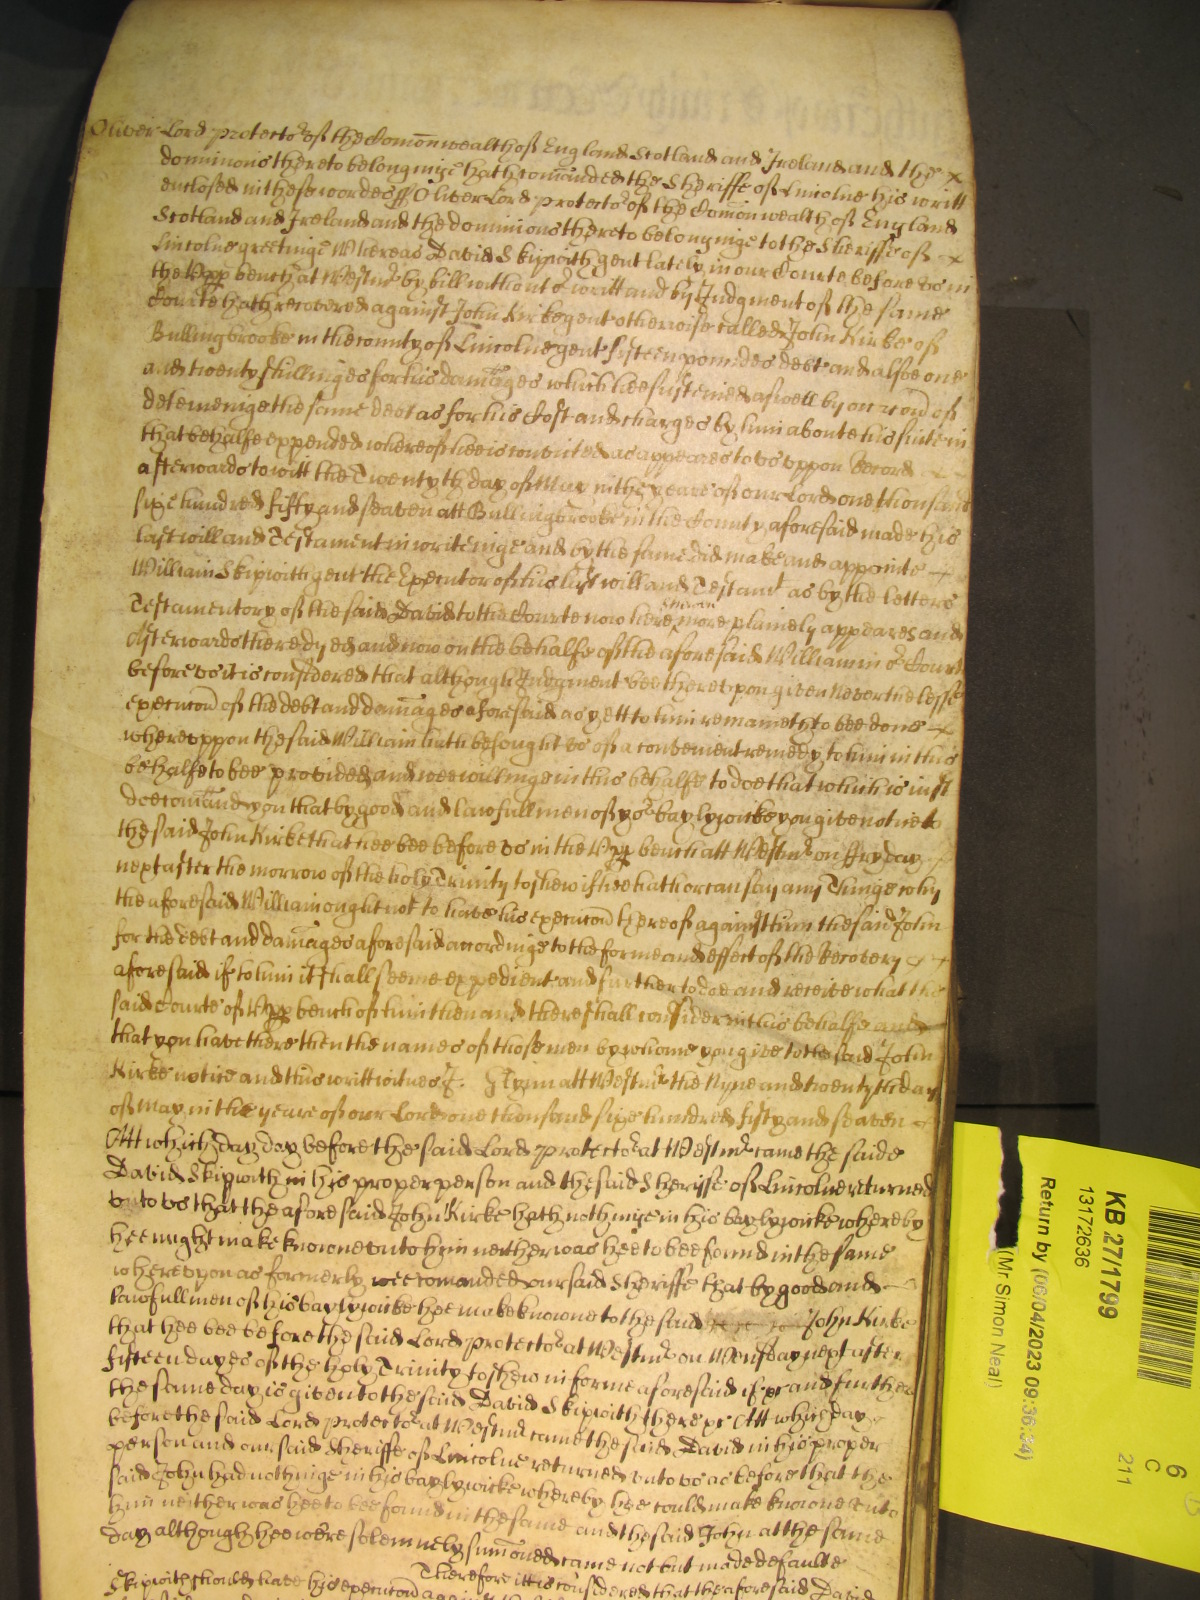 Oliver Lord protector of the Comonwealth of England Scotland and Ireland and the
dominions thereto belonginge hath comanded the Sheriffe of Lincolne his writt
enclosed in these wordes ff Oliver Lord protector of the Comonwealth of England
Scotland and Ireland and the dominions thereto belonginge to the Sheriffe of
Lincolne greetinge Whereas David Skipwith gent lately in our Courte before us in
the Upp bench at Westmr by bill without or writt and by Judgment of the same
Courte hath recovered against John Kirke gent otherwise called John Kirke of
Bullingbrooke in the county of Lincolne gent fifteen poundes debt and alsoe one
and twenty shillinges for his damages which hee susteined aswell by occacon of
deteineinge the same debt as for his Cost and charges by him aboute his suite in
that behalfe expended whereof hee is convicted as appeares to us uppon Record
afterwards to witt the Twentyth day of May in the yeare of our Lord one thousand
sixe hundred fifty and seaven att Bullingbrooke in the County aforesaid made his
last will and Testament in writeinge and by the same did make and appointe
William Skipwith gent the Executor of his last will and Testamt as by the letters
Testamentory of the said David to the Courte now here shewen more plainely appeares and
Afterwards there dyed and now on the behalfe of the aforesaid William in or Court
before us it is considered that although Judgment bee thereupon given Neverthelesse
execucon of the debt and damages aforesaid as yett to him remaineth to bee done
whereuppon the said William hath besought us of a convenient remedy to him in this
behalfe to bee provided and wee willinge in this behalfe to doe that which is just
doe comand you that by good and lawfull men of yor baylywicke you give notice to
the said John Kirke that hee bee before us in the Upp bench att Westmr on Fryday
next after the morrow of the holy Trinity to shew if hee hath or can say any Thinge why
the aforesaid William ought not to have his execucon thereof against him the said John
for the debt and damages aforesaid accordinge to the forme and effect of the Recovery
aforesaid if to him it shall seeme expedient and further to doe and receive what the
said Courte of Upp bench of him then and there shall consider in this behalfe and
that you have there then the names of those men by whome you give to the said John
Kirke notice and this writt witnes J. Glynn att Westmr the Nyne and twentyth day
of May in the yeare of our Lord one thousand sixe hundred fifty and seaven
Att which day day before the said Lord protector at Westmr came the saide
David Skipwith in his proper person and the said Sheriffe of Lincolne returned
unto us that the aforesaid John Kirke hath nothinge in his baylywicke whereby
hee might make knowne unto him neither was hee to bee found in the same
whereupon as formerly wee comanded our said Sheriffe that by good and
lawfull men of his baylywicke hee make knowne to the said John Kirke
that hee bee before the said Lord protector at Westmr on Wensday next after
fifteen dayes of the holy Trinity to shew in forme aforesaid if xc and further xc
the same day is given to the said David Skipwith there xc Att which day
before the said Lord protector at Westmr came the said David in his proper
person and our said Sheriffe of Lincolne returned unto us as before that the
said John had nothinge in his baylywicke whereby hee could make knowne unto
him neither was hee to bee found in the same and the said John at the same
day although hee were solemnely sumoned came not but made defaulte
Therefore itt is considered that the aforesaid David
Skipwith should have his execucon against the
KB 27/1799
13172636
Return by (06/04/2023 09:36:34)
(Mr Simon Neal)
6
C
211